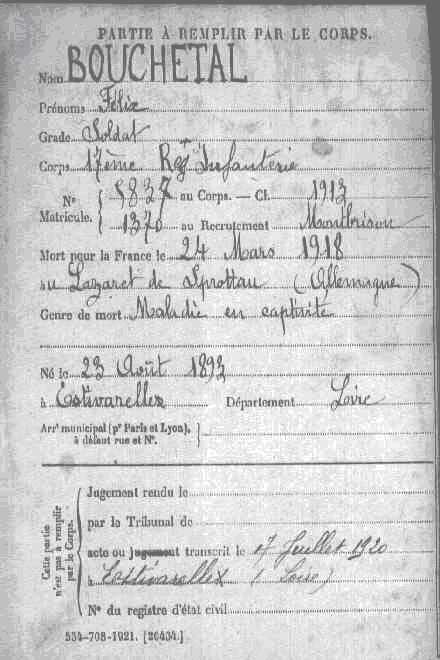 PARTIE À REMPLIR PAR LE CORPS.
Nom BOUCHETAL
Prénoms Félix
Grade Soldat
Corps 17ème Regt Infanterie
N° Matricule. { 5837 au Corps. — Cl. 1913
1370 au Recrutement Montbrison
Mort pour la France le 24 Mars 1918
au Lazaret de Sprottau (Allemagne)
Genre de mort Maladie en captivité
Né le 23 Août 1893
à Estivareilles Département Loire
Arrt municipal (pr Paris et Lyon), à défaut rue et N°. }
Cette partie n'est pas à remplir par le Corps.
Jugement rendu le
par le Tribunal de
acte ou jugement transcrit le 17 Juillet 1920
à Estivareilles (Loire)
N° du registre d'état civil
534-708-1921. [26434.]